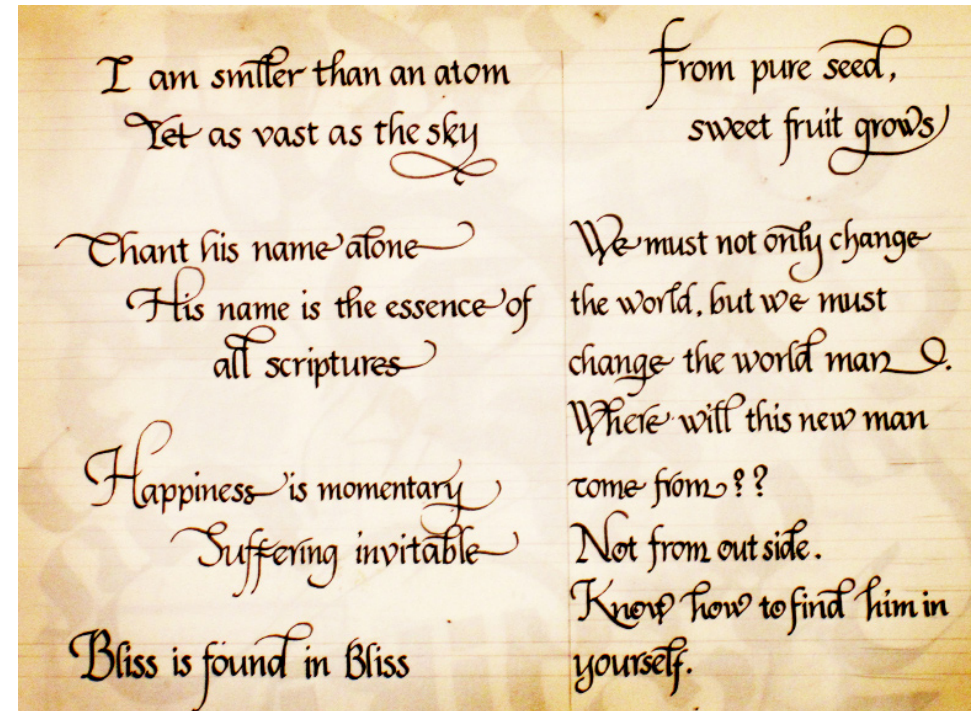 I am smller than an atom
Yet as vast as the sky
Chant his name alone
His name is the essence of
all scriptures
Happiness is momentary
Suffering invitable
Bliss is found in Bliss
From pure seed,
sweet fruit grows
We must not only change
the world, but we must
change the world man.
Where will this new man
come from ??
Not from out side.
Know how to find him in
yourself.